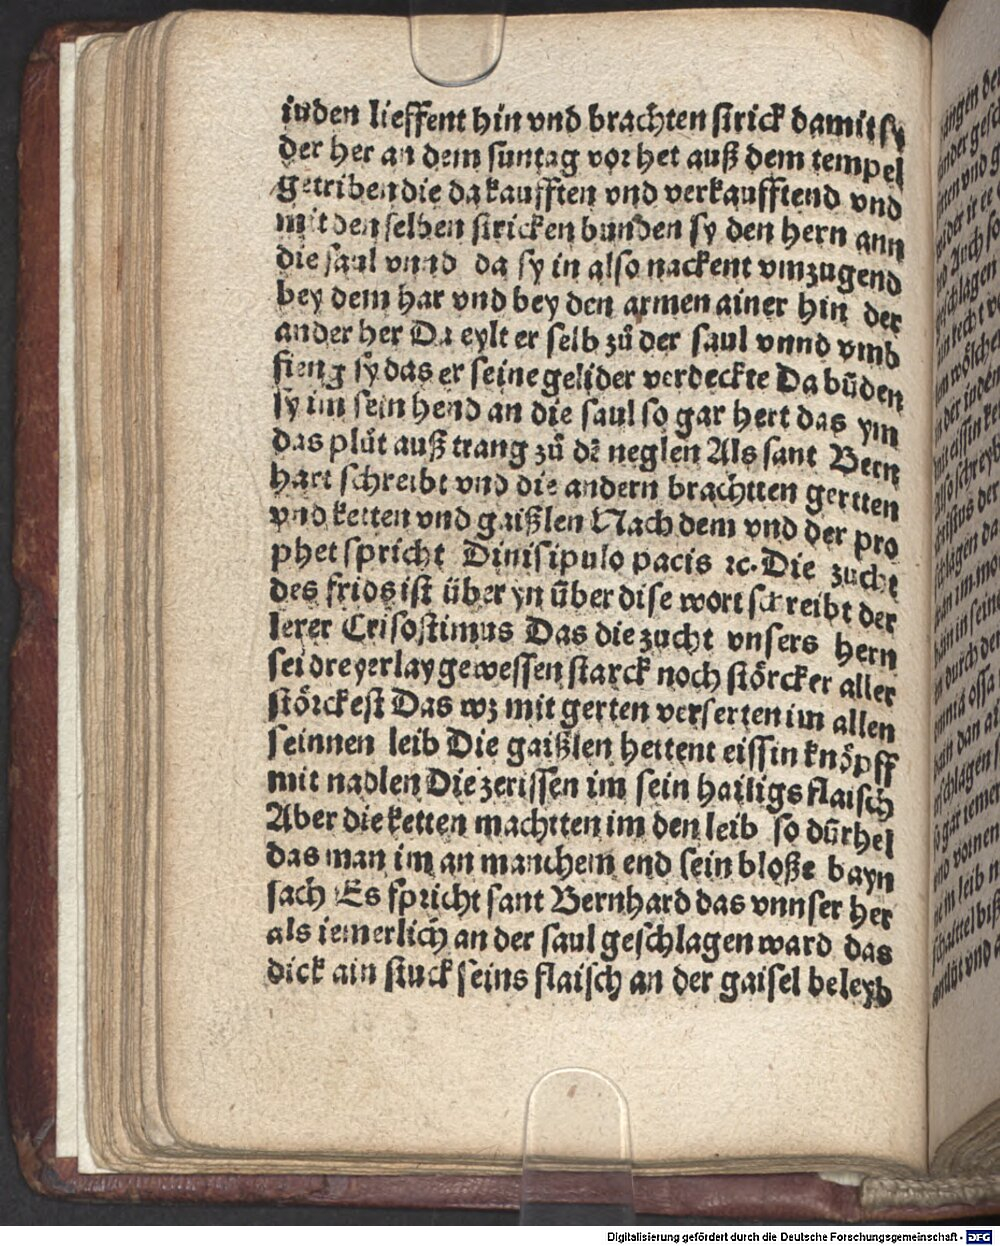 iuden lieffent hin vnd brachten strick damit sy
der her an dem suntag vor het auß dem tempel
getriben die da kaufften vnd verkaufftend vnd
mit den selben stricken bunden sy den hern ann
die saul vnnd da sy in also nackent vmzugend
bey dem har vnd bey den armen ainer hin der
ander her Da eylt er selb zů der saul vnnd vmb
fieng sy das er seine gelider verdeckte Da bũden
sy im sein hend an die saul so gar hert das ym
das plůt auß trang zů dẽ neglen Als sant Bern
hart schreibt vnd die andern brachtten gertten
vnd ketten vnd gaißlen Nach dem vnd der pro
phet spricht Dinisipulo pacis ꝛc. Die zucht
des frids ist über yn über dise wort schreibt der
lerer Crisostimus Das die zucht vnsers hern
sei dreyerlay gewessen starck noch störcker aller
störckest Das wz mit gerten verserten im allen
seinnen leib Die gaißlen hettent eissin knöpff
mit nadlen Die zerissen im sein hailigs flaisch
Aber die ketten machtten im den leib so dürhel
das man im an manchem end sein bloße bayn
sach Es spricht sant Bernhard das vnnser her
als iemerlich an der saul geschlagen ward das
dick ain stuck seins flaisch an der gaisel beleyb
Digitalisierung gefördert durch die Deutsche Forschungsgemeinschaft - DFG